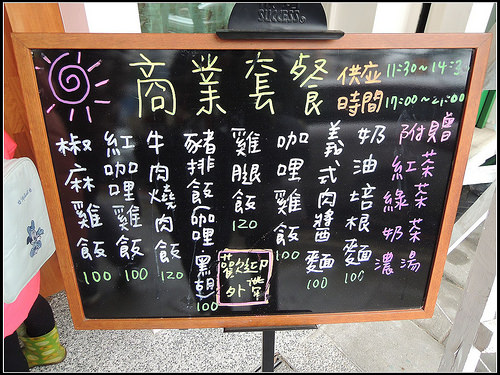 SUCCESS
商業套餐
供应時間 11:30～14:3
17:00～21:00
附贈
紅茶
綠茶
奶茶
濃湯
奶油培根麵 100
義式肉醬麵 100
咖哩雞飯 100
雞腿飯 120
歡迎外帶
豬排飯(咖哩 黑胡) 100
牛肉燒肉飯 120
紅咖哩雞飯 100
椒麻雞飯 100